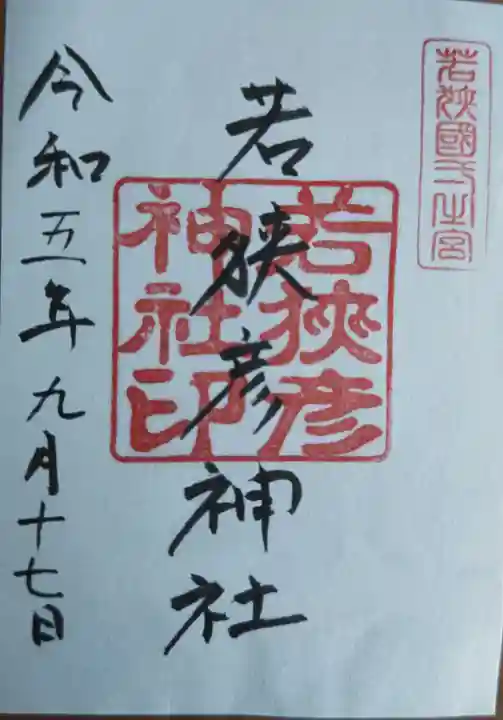 若狭國一之宮
若狭彦神社
若狹彦
神社印
令和五年九月十七日